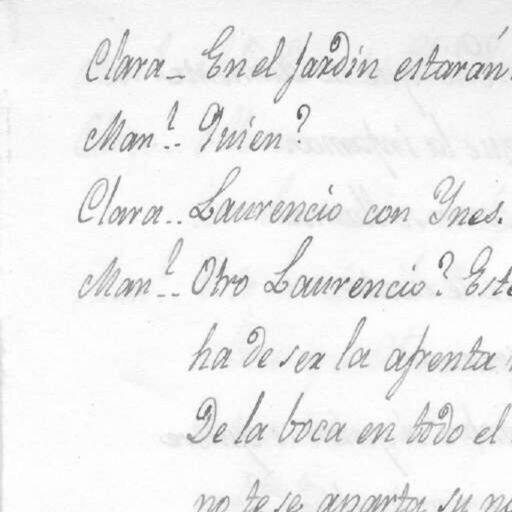 Clara - En el Jardin estarán
Man.l - Quien?
Clara - Laurencio con Ynes.
Man.l - Otro Laurencio? Est
ha de ser la afrenta
De la boca en todo el
no te se aparta su